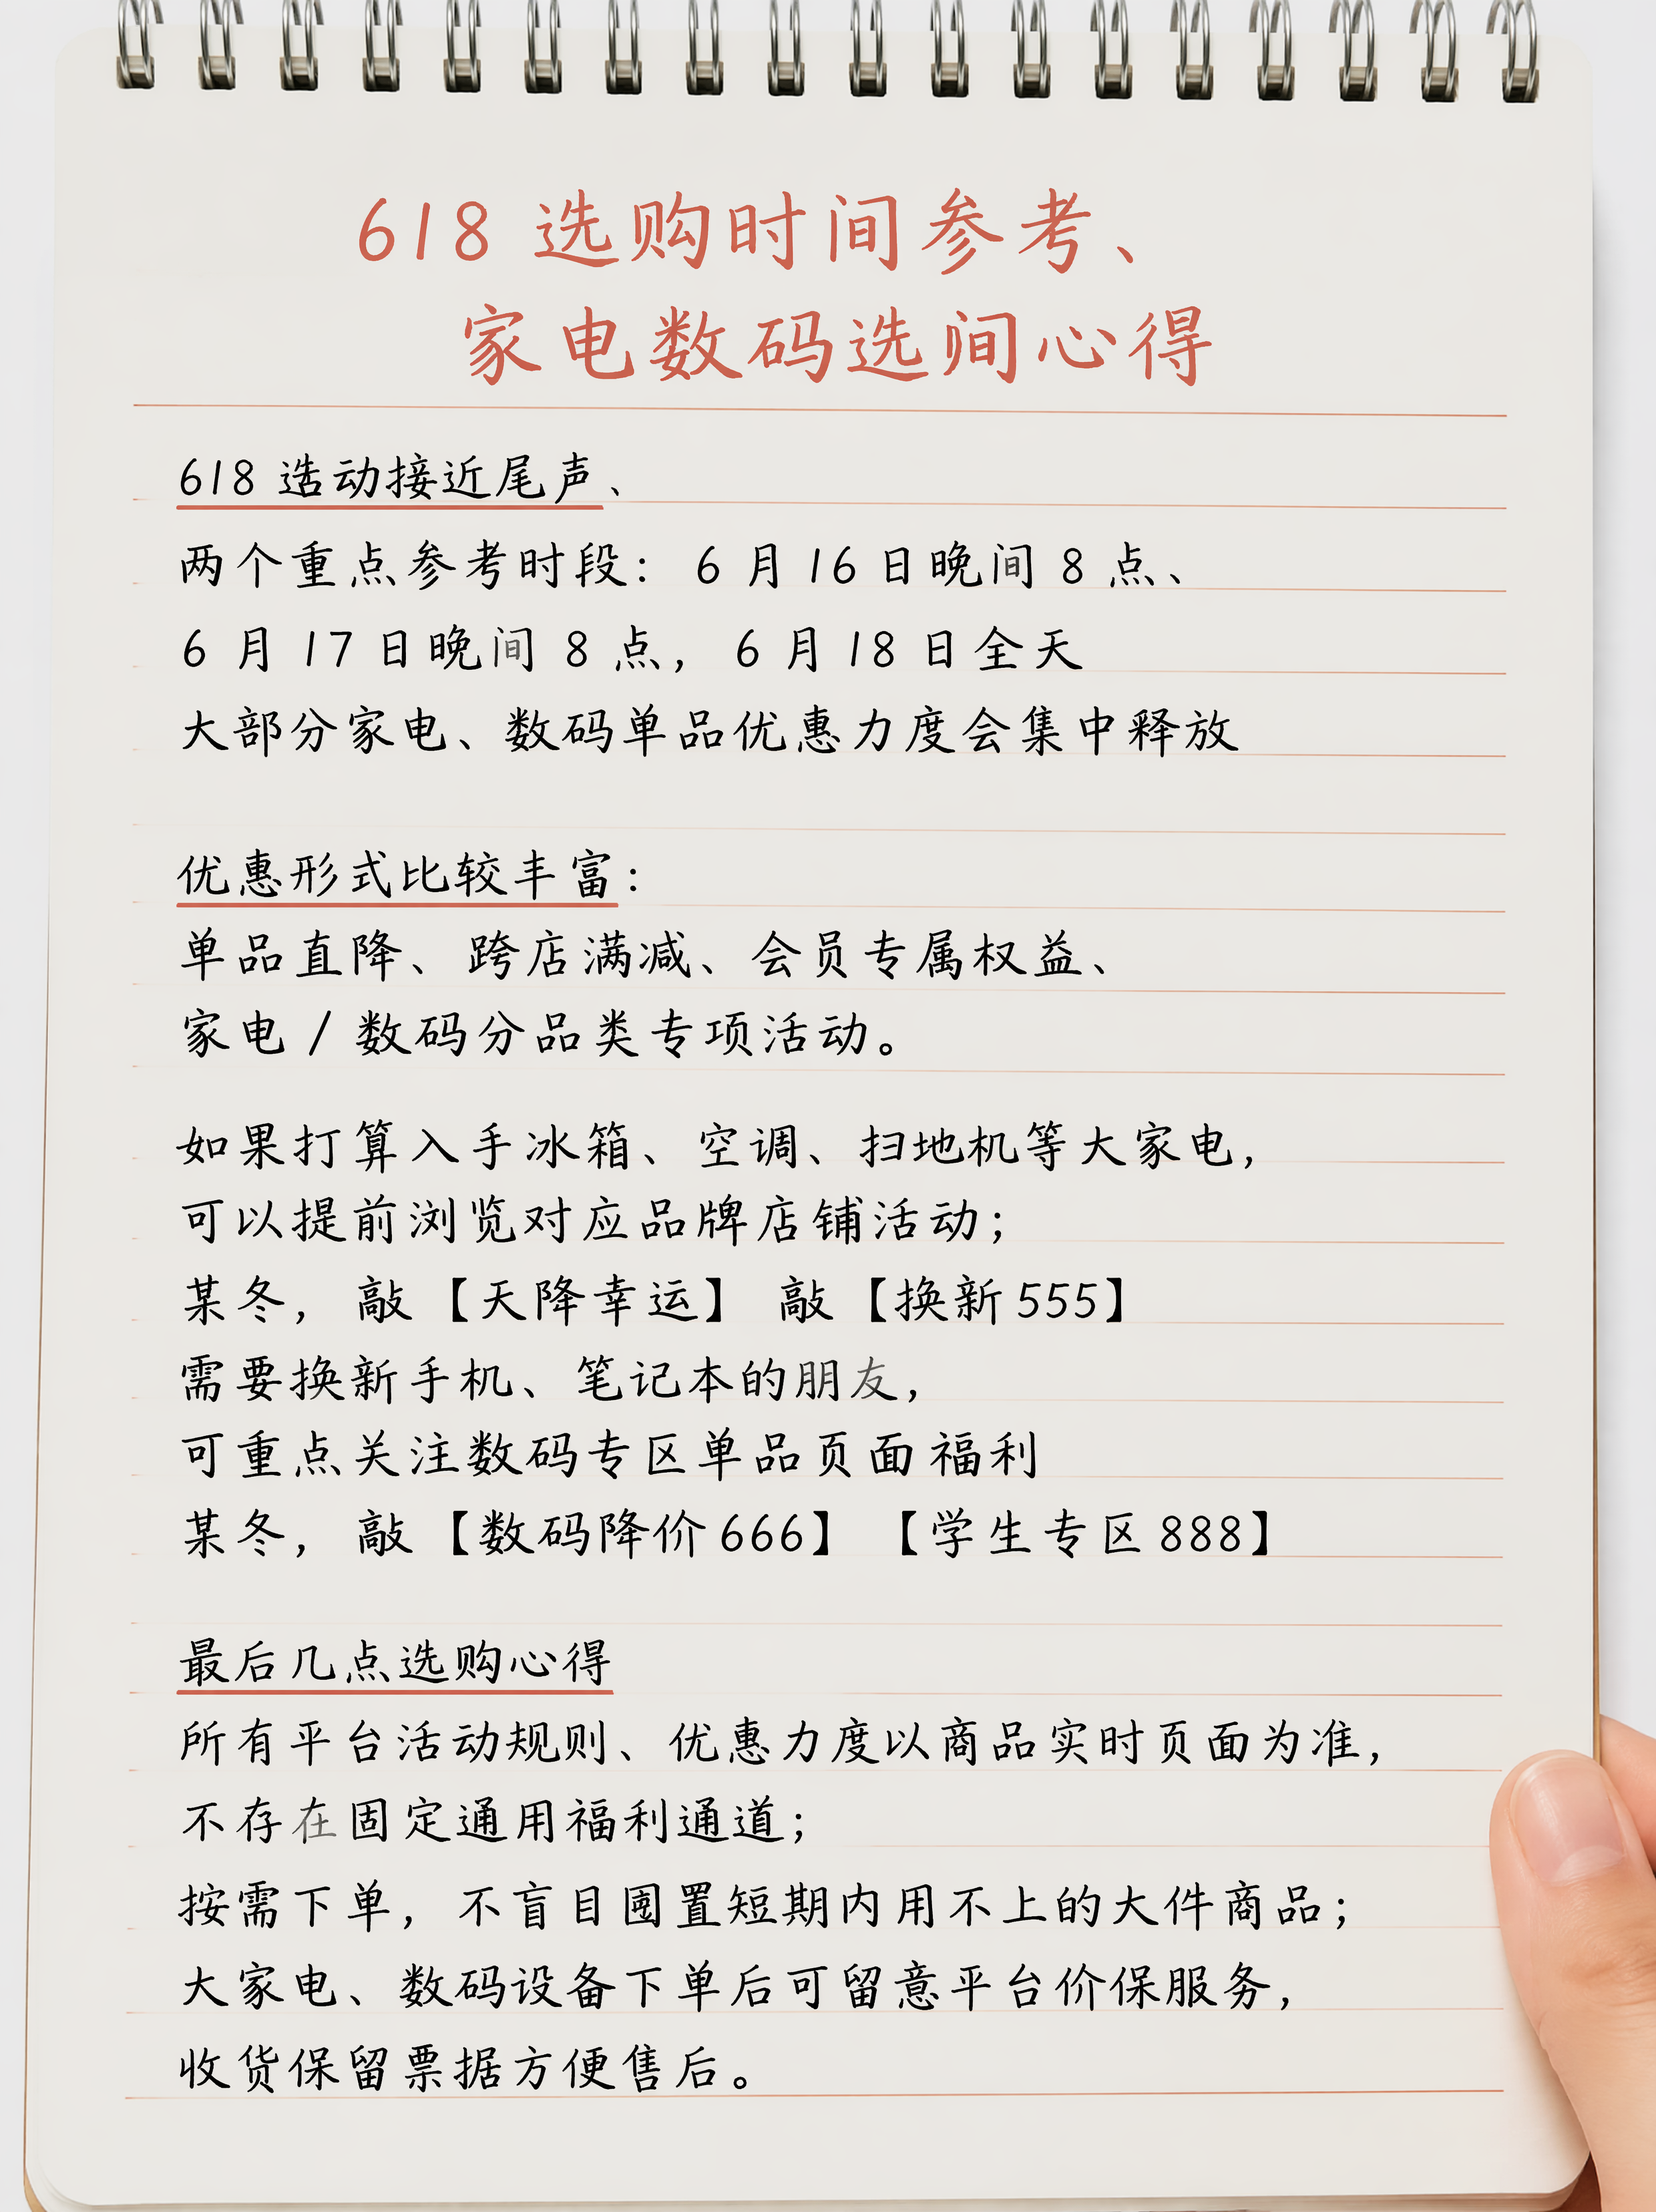 618 选购时间参考、
家电数码选间心得
618 选动接近尾声、
两个重点参考时段：6 月 16 日晚间 8 点、
6 月 17 日晚间 8 点，6 月 18 日全天
大部分家电、数码单品优惠力度会集中释放
优惠形式比较丰富：
单品直降、跨店满减、会员专属权益、
家电 / 数码分品类专项活动。
如果打算入手冰箱、空调、扫地机等大家电，
可以提前浏览对应品牌店铺活动；
某冬，敲【天降幸运】 敲【换新555】
需要换新手机、笔记本的朋友，
可重点关注数码专区单品页面福利
某冬，敲【数码降价666】【学生专区888】
最后几点选购心得
所有平台活动规则、优惠力度以商品实时页面为准，
不存在固定通用福利通道；
按需下单，不盲目囤置短期内用不上的大件商品；
大家电、数码设备下单后可留意平台价保服务，
收货保留票据方便售后。